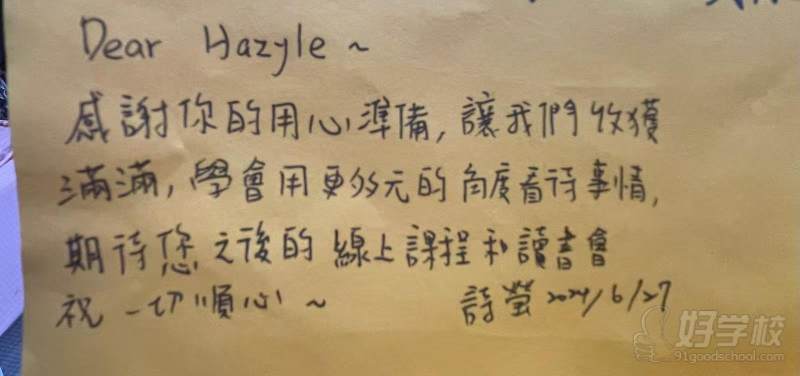 Dear Hazyle ~
感謝你的用心準備, 讓我們收獲
滿滿, 學會用更多元的角度看待事情,
期待您之後的線上課程和讀書會
祝 一切順心~ 詩螢 2024/6/27
好学校
91goodschool.com